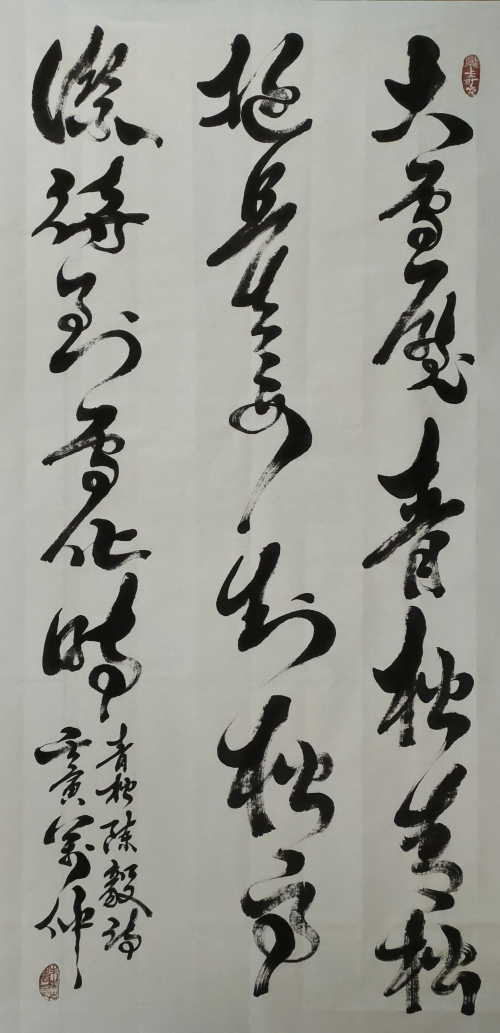 大雪壓青松青松
挺且直要知松高
潔待到雪化時
青松陳毅詩
壬寅